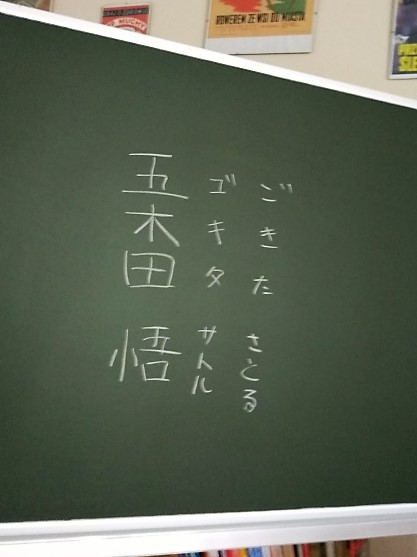 ROWEREM ZE WSI DO MIASTA
ごきた さとる
ゴキタ サトル
五木田 悟